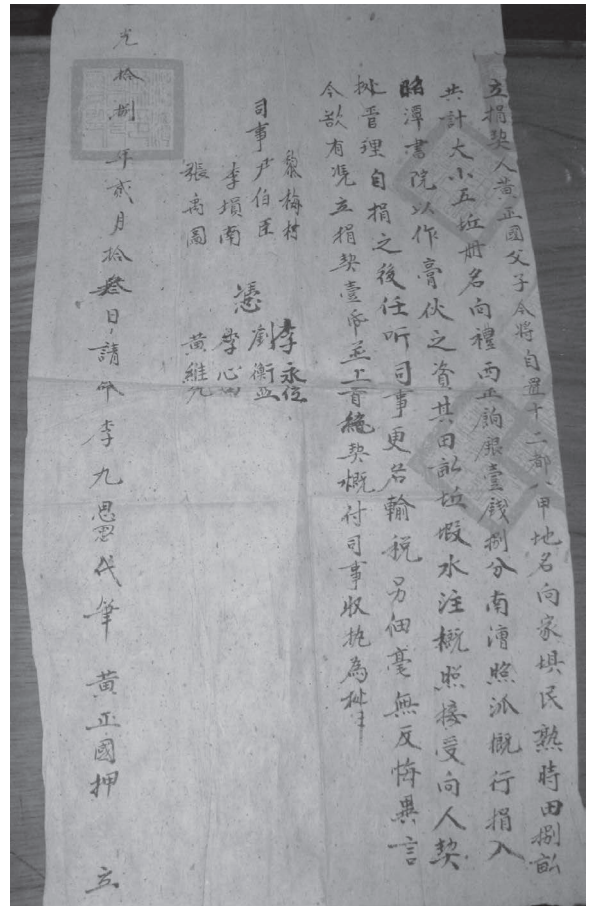 立捐契人黃正國父子今將自置十二都八甲地名向家塅民熟時田捌畝
共計大小五坵册名向禮西正餉銀壹錢捌分南漕照派概行捐入
昭潭書院以作膏伙之資其田畝坵塅水注概照接受向人契
批管理自捐之後任听司事更名輸税另佃毫無反悔異言
今欲有凴立捐契壹帋並上首統契概付司事收执為批
黎梅村
司事尹伯臣
李塤南
張禹圖
李永位
凴 劉衡
李心
黃維
光拾捌年贰月拾叁日請命李九思代筆 黃正國押 立